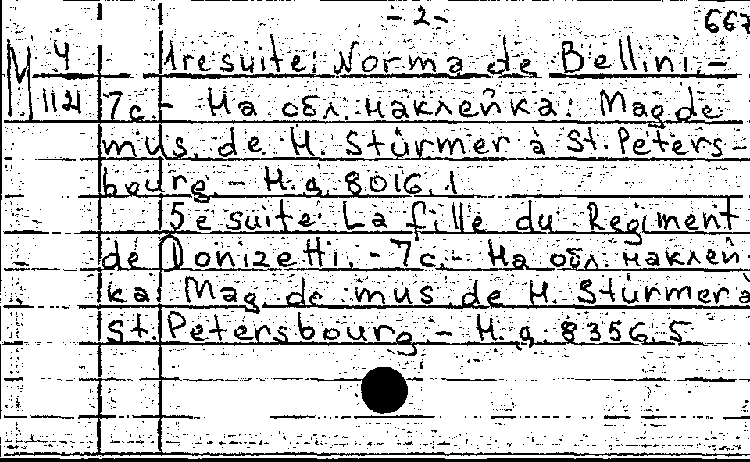 - 2 - 667
М 4 1re suite: Norma de Bellini. -
1121 7с. - На обл. наклейка: Mag de
mus. de M. Stürmer à St. Peters-
bourg. - Н. д. 8016. 1
5e suite: La fille du Regiment
de Donizetti. - 7с. - На обл. наклей-
ка: Mag. de mus. de M. Stürmer à
St. Petersbourg. - Н. д. 8356. 5